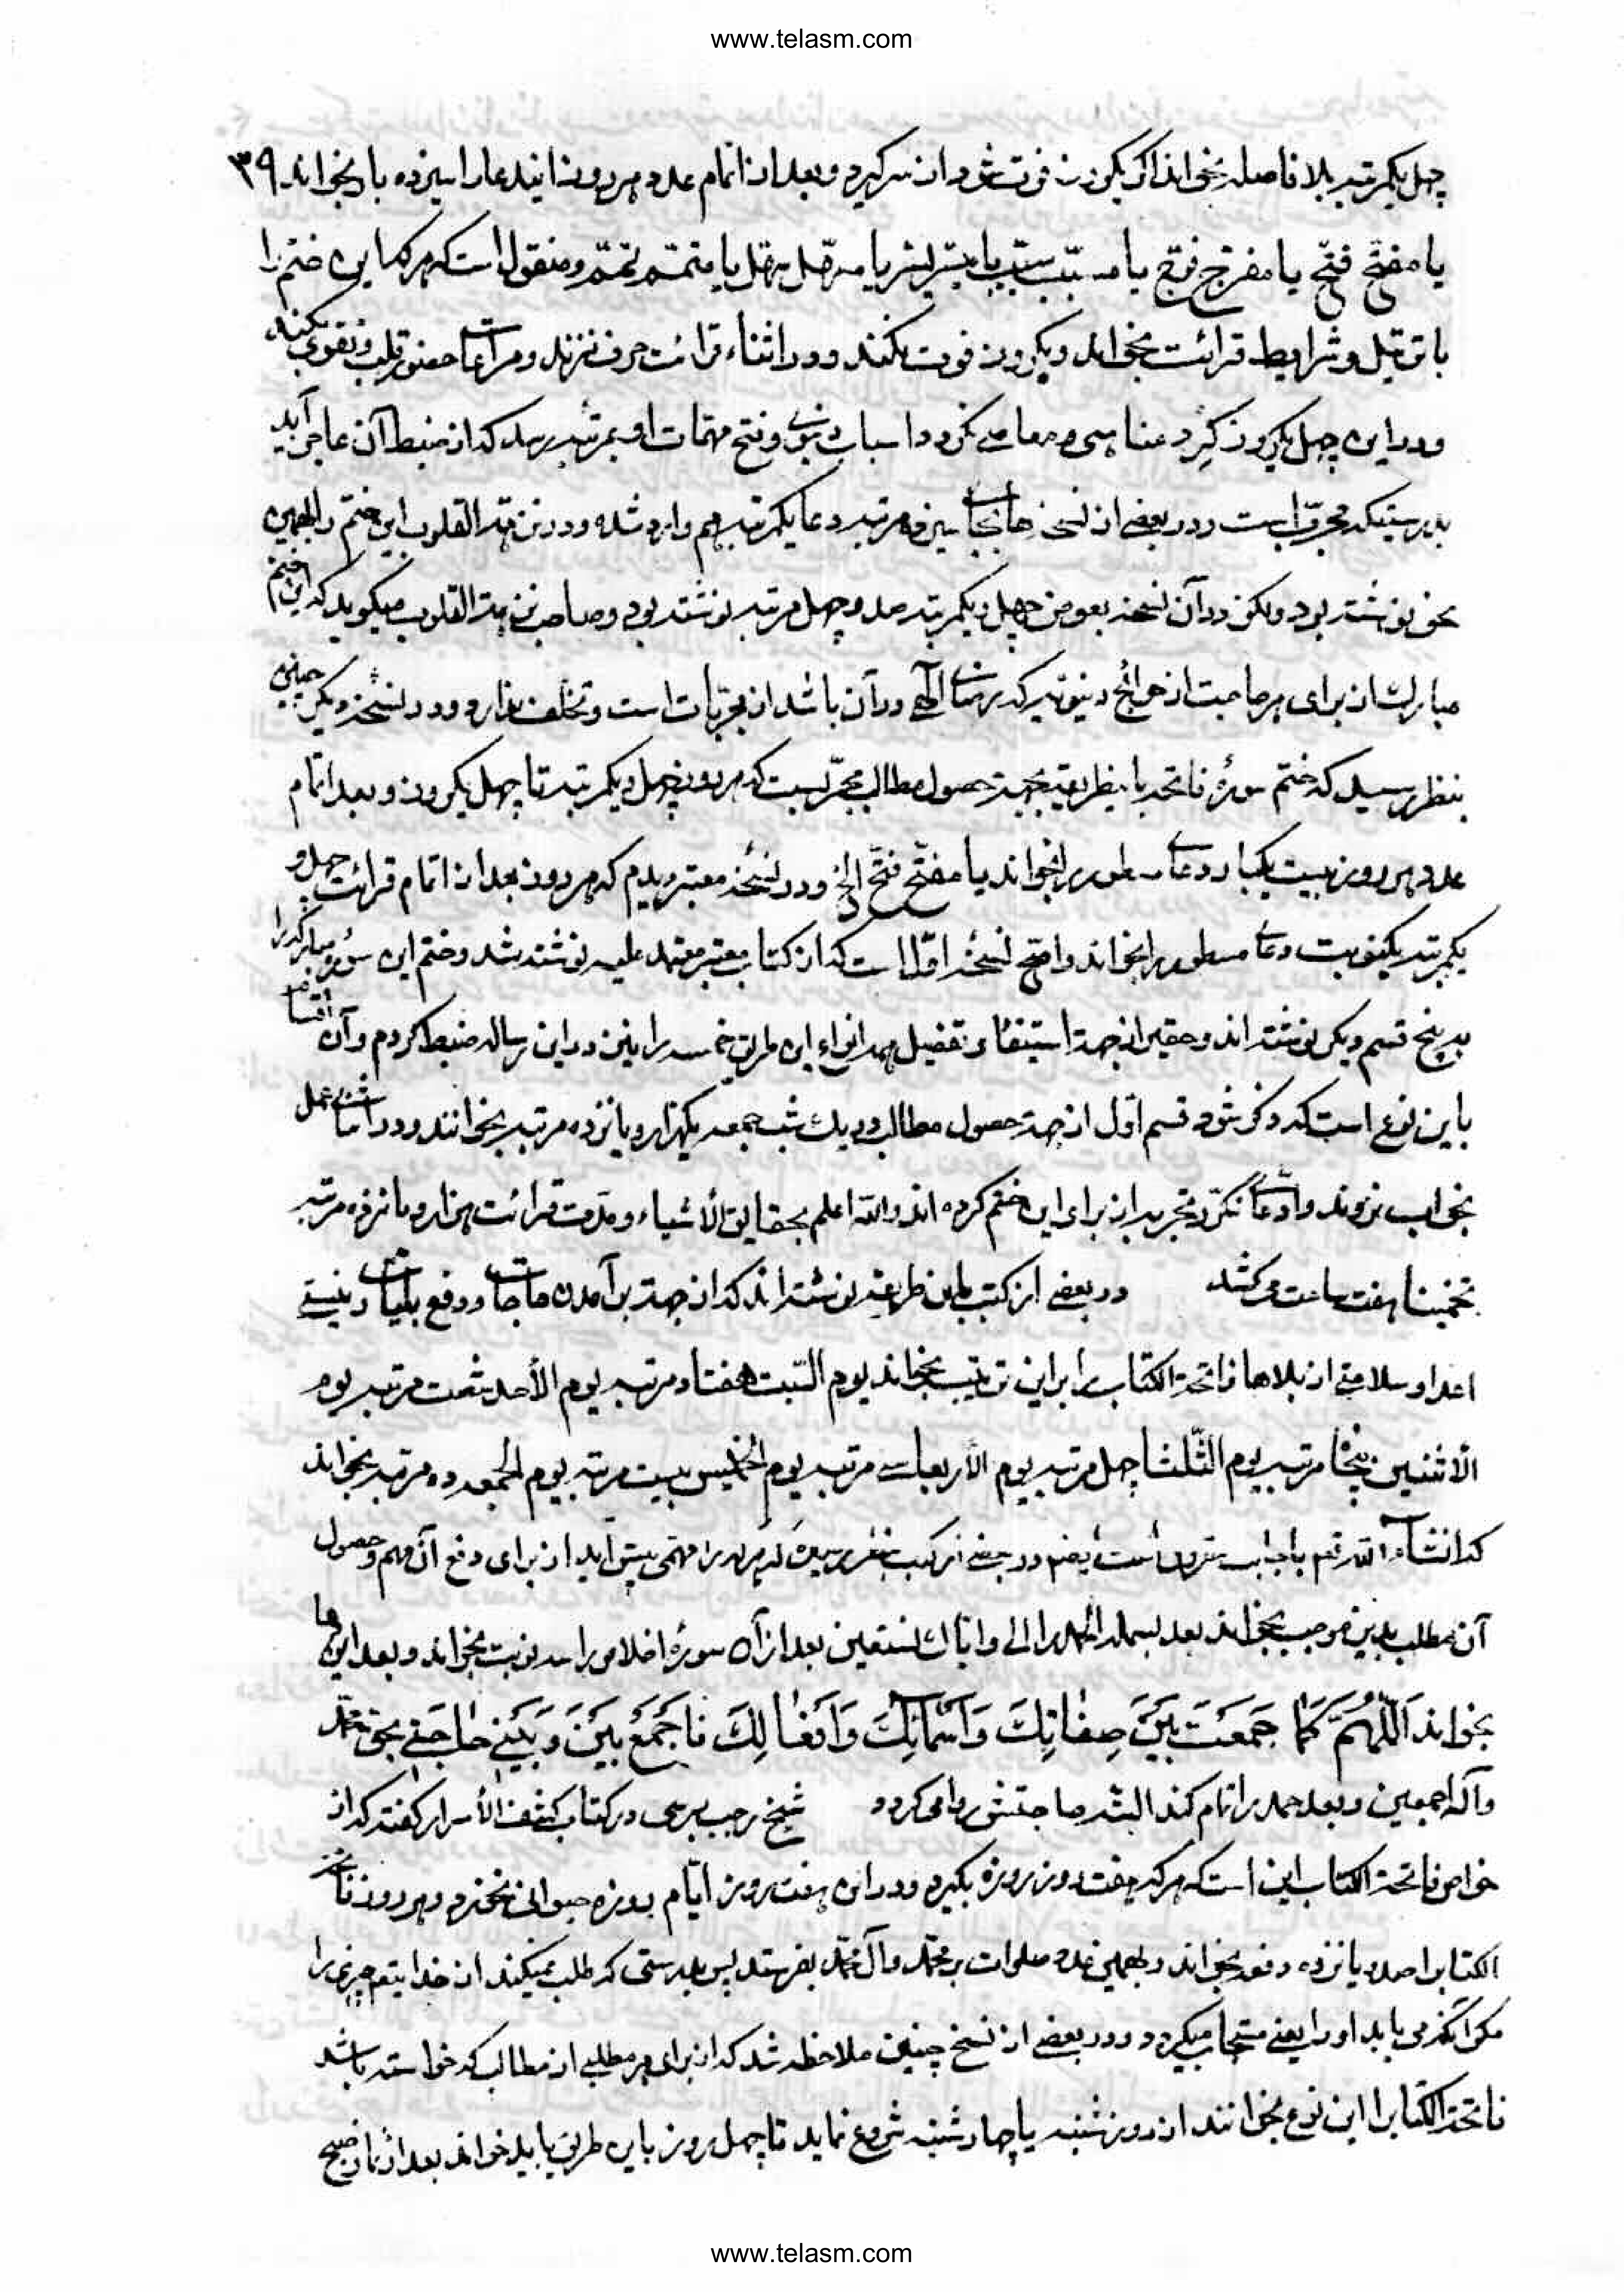 www.telasm.com
چهل یکمرتبه بلا فاصله بخواند اگر یکروز فوت شود از سر گیرد و بعد از اتمام عدد هر روز اندعا را سیزده بار بخواند ٣٩
یا مفتّح فتّح یا مفرّج فرّج یا مسبّب سبّب یا میسّر یسّر یا مسهّل سهّل یا متمّم تمّم و منقول است که هر که این ختم را
با ترتیل و شرایط قرائت بخواند و یکروز فوت نکند و در اثناء قرائت حرف نزند و مراعات حضور قلب و تقوی بکند
و در این چهل یکروز گرد مناهی و معاصی نگردد اسباب دنیوی و فتح مهمات او بمرتبه رسد که از ضبط آن عاجز آید
بدرستیکه مجرّب است و در بعضی از نسخ بجای سیزده مرتبه دعا یکمرتبه هم وارد شده و در نزهة القلوب این ختم را بهمین
نحو نوشته بود ولکن در آن نسخه بعوض چهل و یکمرتبه صد و چهل مرتبه نوشته بود و صاحب نزهة القلوب میگوید که این ختم
مبارک از برای هر حاجت از حوائج دنیویه که رضای الهی در آن باشد از مجربات است و تخلف ندارد و در نسخه دیگر چنین
بنظر رسید که ختم سورهٔ فاتحه باینطریقه بجهة حصول مطالب مجرّبست که هر روز چهل و یکمرتبه تا چهل یکروز و بعد اتمام
عدد هر روز بیست یکبار دعای مسطور را بخواند یا مفتّح فتّح الخ و در نسخه معتبر دیدم که هر روز بعد از اتمام قرائت چهل و
یکمرتبه یکنوبت دعای مسطور را بخواند و اصحّ نسخهٔ اوّل است که از کتاب معتبر معتمد علیه نوشته شد و ختم این سورهٔ مبارکه را
به پنج قسم دیگر نوشته اند و حقیر از جهة استیفاء و تفضیل همه انواء این طریق خمسه را نیز در این رساله ضبط کردم و آن اقسام
باین نوع است که ذکر شود قسم اوّل از جهة حصول مطالب در یک شب جمعه یکهزار و پانزده مرتبه بخوانند و در اثنای عمل
بخواب نروند و ادّعای تجربه از برای این ختم کرده اند والله اعلم بحقایق الأشیاء و مدّت قرائت هزار و پانزده مرتبه
تخمیناً هفت ساعت می کشد در بعضی از کتب باین طریقه نوشته اند که از جهة برآمدن حاجات و دفع بلیات و نیستی
اعدا و سلامتی از بلاها فاتحة الکتاب را بر این ترتیب بخواند یوم السّبت هفتاد مرتبه یوم الأحد شصت مرتبه یوم
الأثنین پنجاه مرتبه یوم الثّلثا چهل مرتبه یوم الأربعا سی مرتبه یوم الخمیس بیست مرتبه یوم الجمعه ده مرتبه بخواند
که انشاء الله تعم باجابت مقرون است ایضاً در بعضی از کتب بنظر رسیده که هر که را مهمّی پیش آید از برای دفع آن مهم و حصول
آن مطلب بدین موجب بخواند بعد بسمله الحمد را الی و ایاک نستعین بعد از آن سورهٔ اخلاص را سه نوبت بخواند و بعد این دعا
بخواند اَللّهُمَّ کَمٰا جَمَعْتَ بَیْنَ صِفٰاتِکَ وَ اَسْمٰائِکَ وَ اَفْعٰالِکَ فَاجْمَعْ بَیْنَ وَ بَیْنِی حٰاجَتِی بحق محمّد
و آله اجمعین و بعد حمد را تمام کند البتّه حاجتش روا می کردد شیخ رجب برسی در کتاب کشف الأسرار گفته که از
خواص فاتحة الکتاب این است که هر که هفت روز روزه بگیرد و در این هفت روز ایّام روزه حیوانی نخورد و هر روز فاتحة
الکتاب را صد و پانزده دفعه بخواند و بهمین عدد صلوات بر محمّد و آل محمّد بفرستد پس بدرستی که طلب نمیکند از خدایتعم چیزی را
مگر آنکه می یابد او را یعنی مستجاب میگردد و در بعضی از نسخ چنین ملاحظه شد که از برای هر مطلبی از مطالب که خواسته باشد
فاتحة الکتاب را این نوع بخوانند از روز شنبه یا چهارشنبه شروع نماید تا چهل روز باین طریق باید خواند بعد از نماز صبح
www.telasm.com